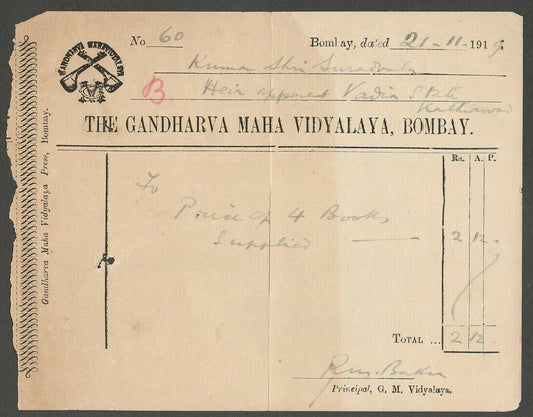 GANDHARVA MAHAVIDYALAYA
No 60 Bombay, dated 21-11-1919
Kumar Shri
B Heir apparent Vadia State
Kathiawar
THE GANDHARVA MAHA VIDYALAYA, BOMBAY.
Rs. A. P.
To
Price of 4 Books
Supplied — 2 12 -
TOTAL ... 2 12
Principal, G. M. Vidyalaya.
Gandharva Maha Vidyalaya Press, Bombay.